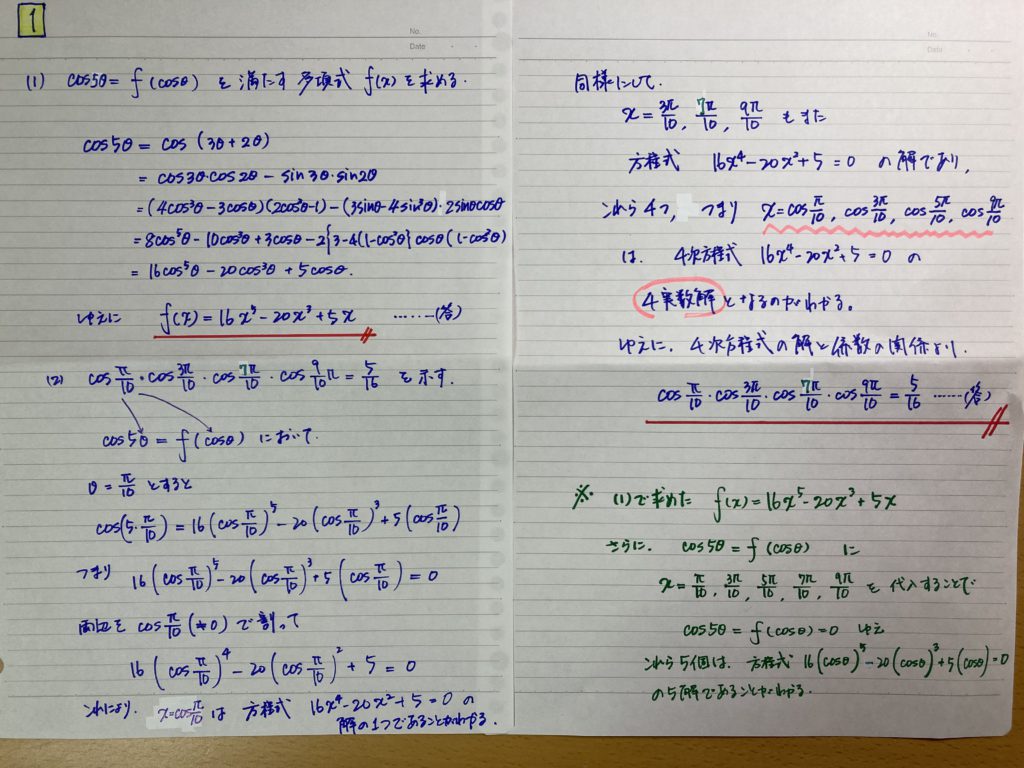 1
No.
Date
(1) cos5θ = f(cosθ) を満たす多項式 f(x) を求める.
cos5θ = cos (3θ+2θ)
= cos3θ・cos2θ − sin3θ・sin2θ
= (4cos³θ − 3cosθ)(2cos²θ−1) − (3sinθ−4sin³θ)・2sinθcosθ
= 8cos⁵θ − 10cos³θ + 3cosθ − 2{3−4(1−cos²θ} cosθ (1−cos²θ)
= 16cos⁵θ − 20cos³θ + 5cosθ.
ゆえに f(x) = 16x⁵ − 20x³ + 5x ……(答)
(2) cos π/10・cos 3π/10・cos 7π/10・cos 9/10 π = 5/16 を示す.
cos5θ = f(cosθ) において.
θ = π/10 とすると
cos(5・π/10) = 16(cos π/10)⁵ − 20(cos π/10)³ + 5(cos π/10)
つまり 16(cos π/10)⁵ − 20(cos π/10)³ + 5(cos π/10) = 0
両辺を cos π/10 (≠0) で割って
16(cos π/10)⁴ − 20(cos π/10)² + 5 = 0
これにより. x=cos π/10 は 方程式 16x⁴−20x²+5=0 の
解の1つであることがわかる.
No.
Date
同様にして.
x = 3π/10, 7π/10, 9π/10 もまた
方程式 16x⁴−20x²+5=0 の解であり,
これら4つ, つまり x=cos π/10, cos 3π/10, cos 5π/10, cos 9π/10
は. 4次方程式 16x⁴−20x²+5=0 の
4実数解となるのがわかる.
ゆえに. 4次方程式の解と係数の関係より.
cos π/10・cos 3π/10・cos 7π/10・cos 9π/10 = 5/16 ……(答)
※ (1)で求めた f(x)=16x⁵−20x³+5x
さらに. cos5θ = f(cosθ) に
x = π/10, 3π/10, 5π/10, 7π/10, 9π/10 を代入することで
cos5θ = f(cosθ) = 0 ゆえ
これら5個は. 方程式 16(cosθ)⁵−20(cosθ)³+5(cosθ)=0
の5解であることがわかる.